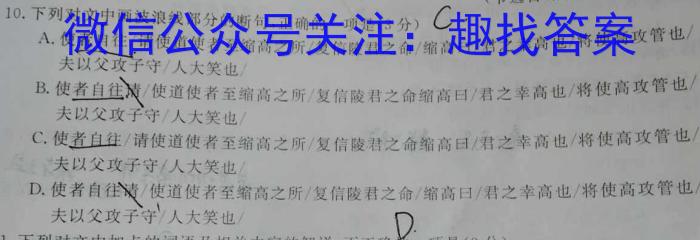 10.下列对文中画波浪线部分的断句,正确的一项是 分) C
微信公众号关注：趣找答案
A.使 使道使者至缩高之所/复信陵君之命/缩高 君之幸高也/将使高攻管也/
夫以父攻子守/人大笑也/
B.使者自往请/使道使者至缩高之所/复信陵君之命缩高曰/君之幸高也/将使高攻管也/
夫以父攻子守/人大笑也/
C.使者自往/请使道使者至缩高之所/复信陵君之命缩高曰/君之幸高也/将使高攻管也/
夫以父攻子守/人大笑也/
D.使者自往请/使道使者至缩高之所/复信陵君之命/缩高曰/君之幸高也/将使高攻管也/
夫以父攻子守/人大笑也/
D.